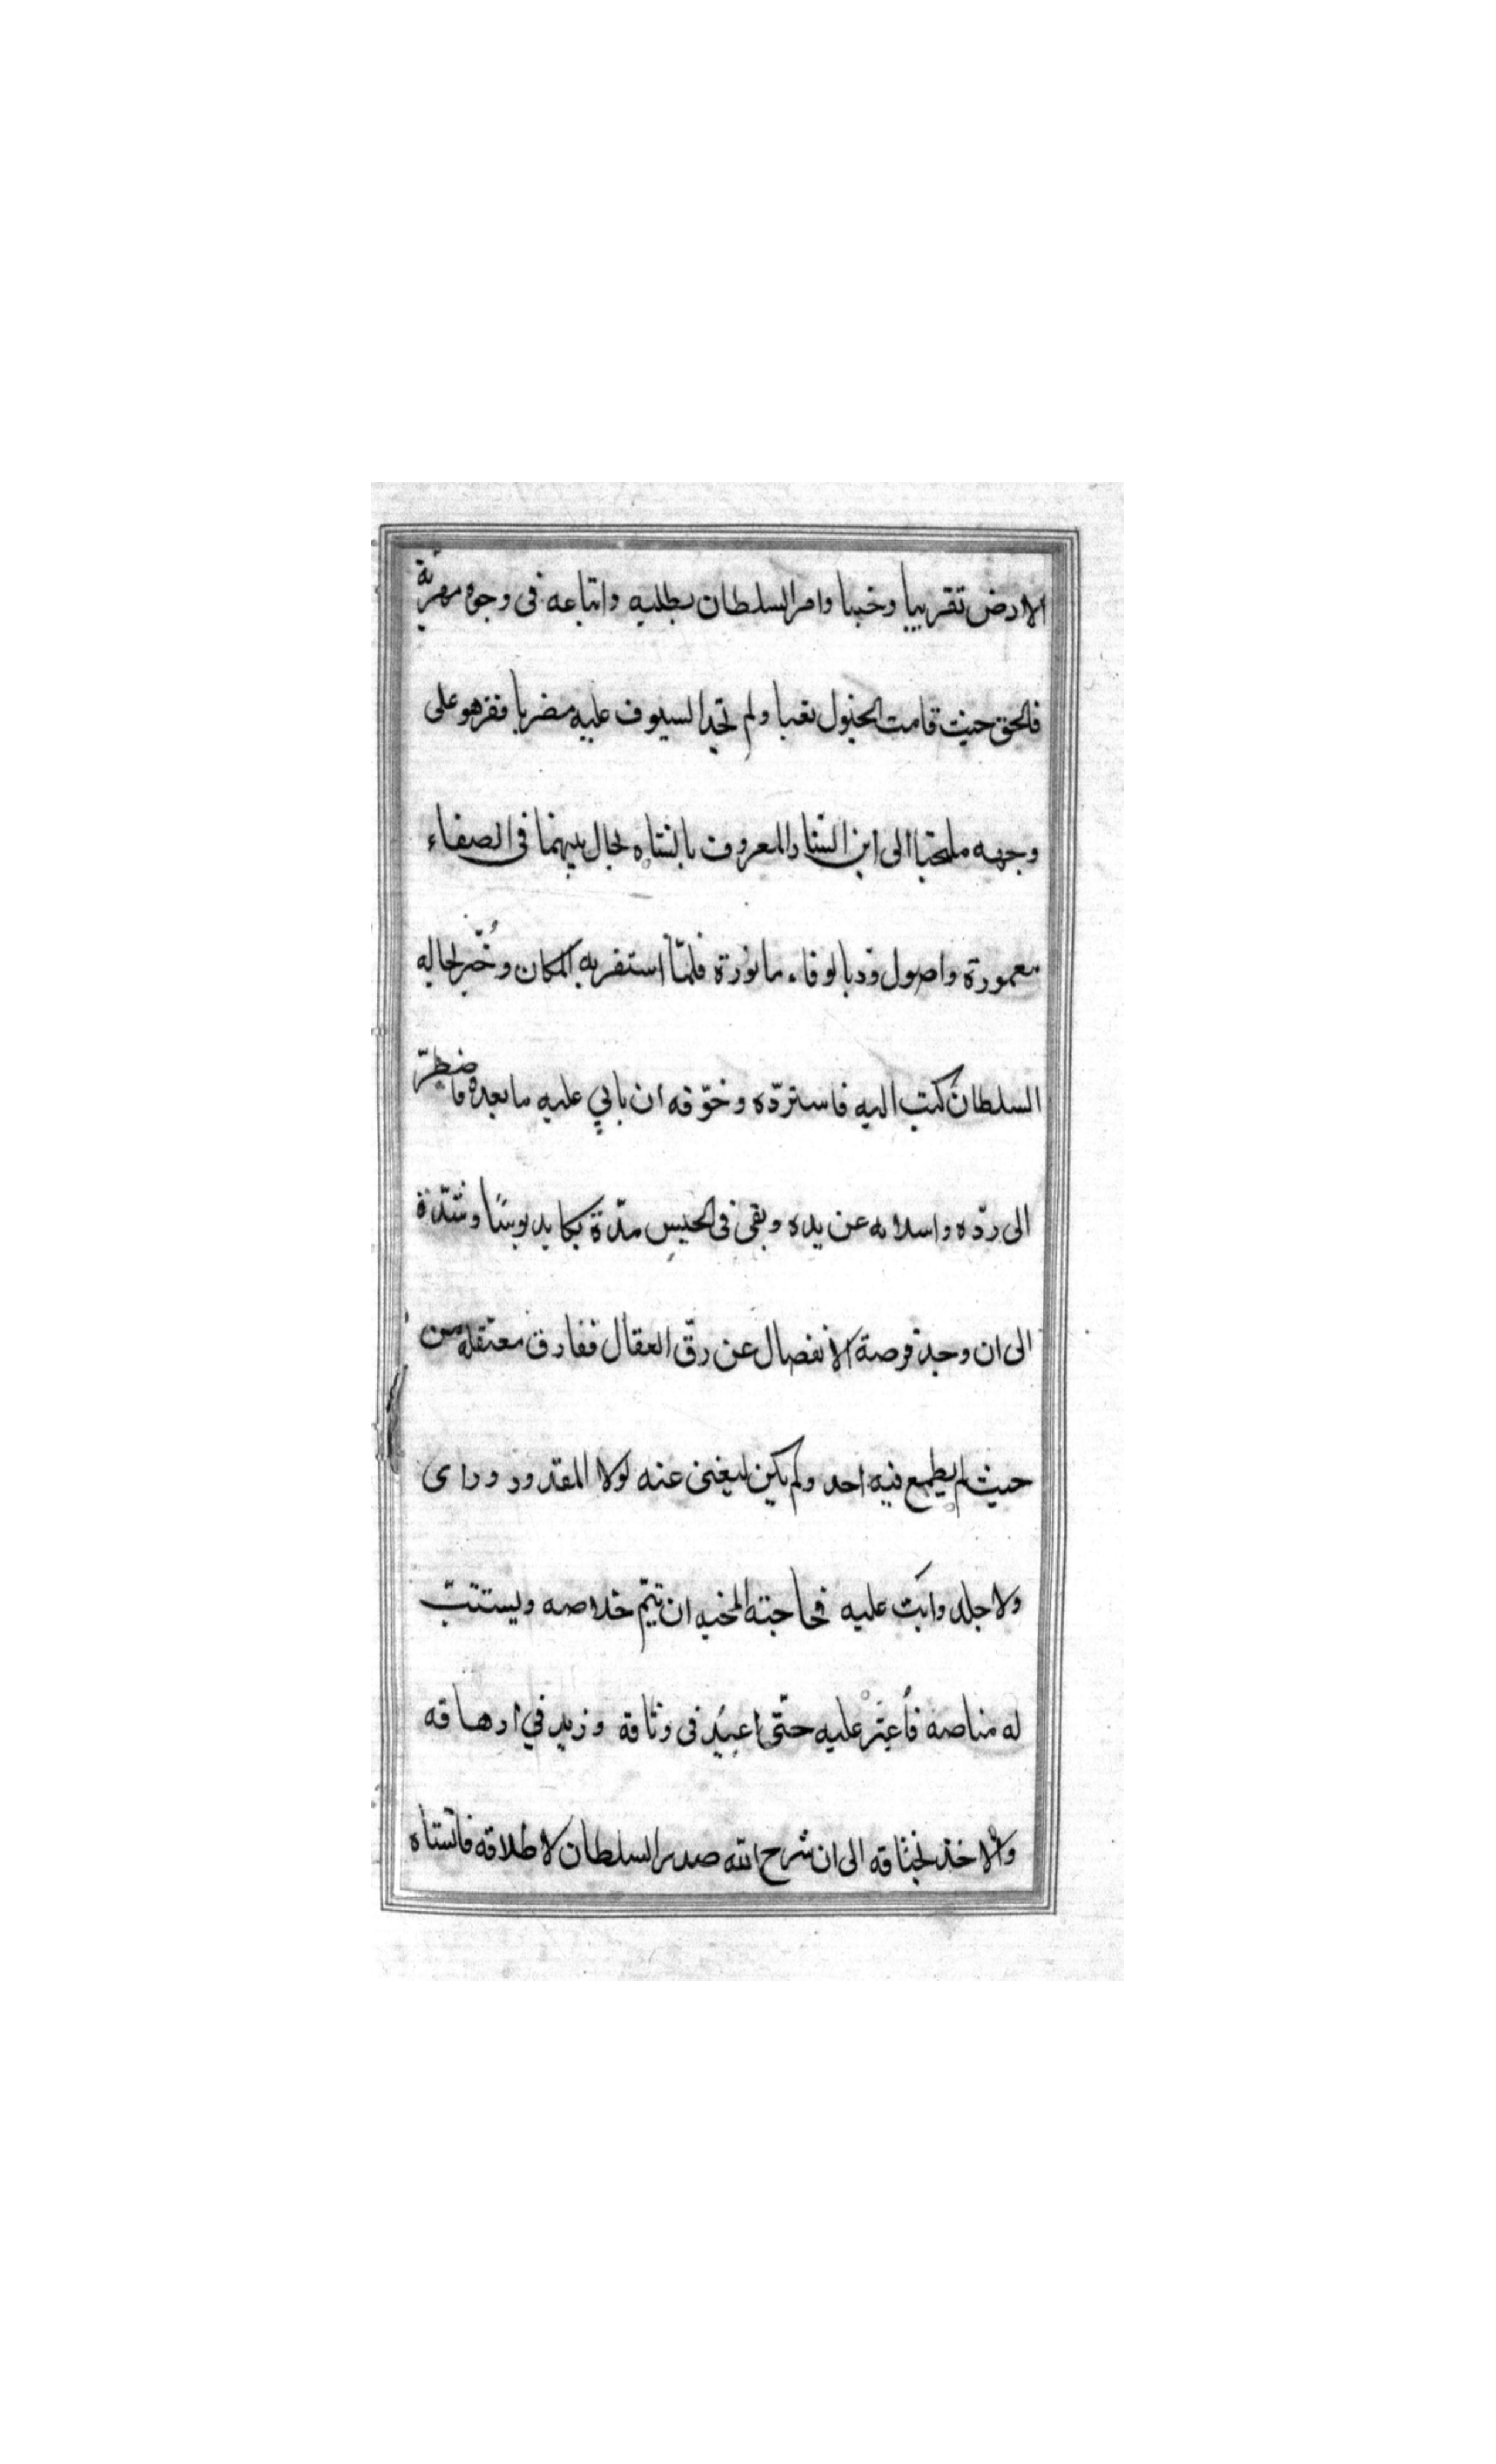 الارض تقريبا وخببا وامر السلطان بطلبه واتباعه فى وجوه مهربة
فالحق حيث قامت الخيول تعبا ولم تجد السيوف عليه مضربا ففر هو على
وجهه ملتجئا الى ابن الشار المعروف بالشاه لحال بينهما فى الصفاء
معمورة واصول ود بالوفاء مانورة فلمّا استقر به المكان وخُبّر لحاله
السلطان كتب اليه فاستردّه وخوّفه ان ياتي عليه ما بعده فاضطرّ
الى ردّه واسلامه عن يده وبقى فى الحبس مدّة يكابد بوسًا وشدّة
الى ان وجد فرصة الانفصال عن رقّ العقال ففارق معتقله من
حيث لم يطمع فيه احد ولم يكن ليغنى عنه لولا المقدور وراى
ولا جلد وابَت عليه المخبه ان يتمّ خلاصه ويستتبّ
له مناصه فاُعثر عليه حتّى اعيُد فى وثاقه وزيد في ارهاقه
والاخذ بخناقه الى ان شرح الله صدر السلطان لاطلاقه فانشاه